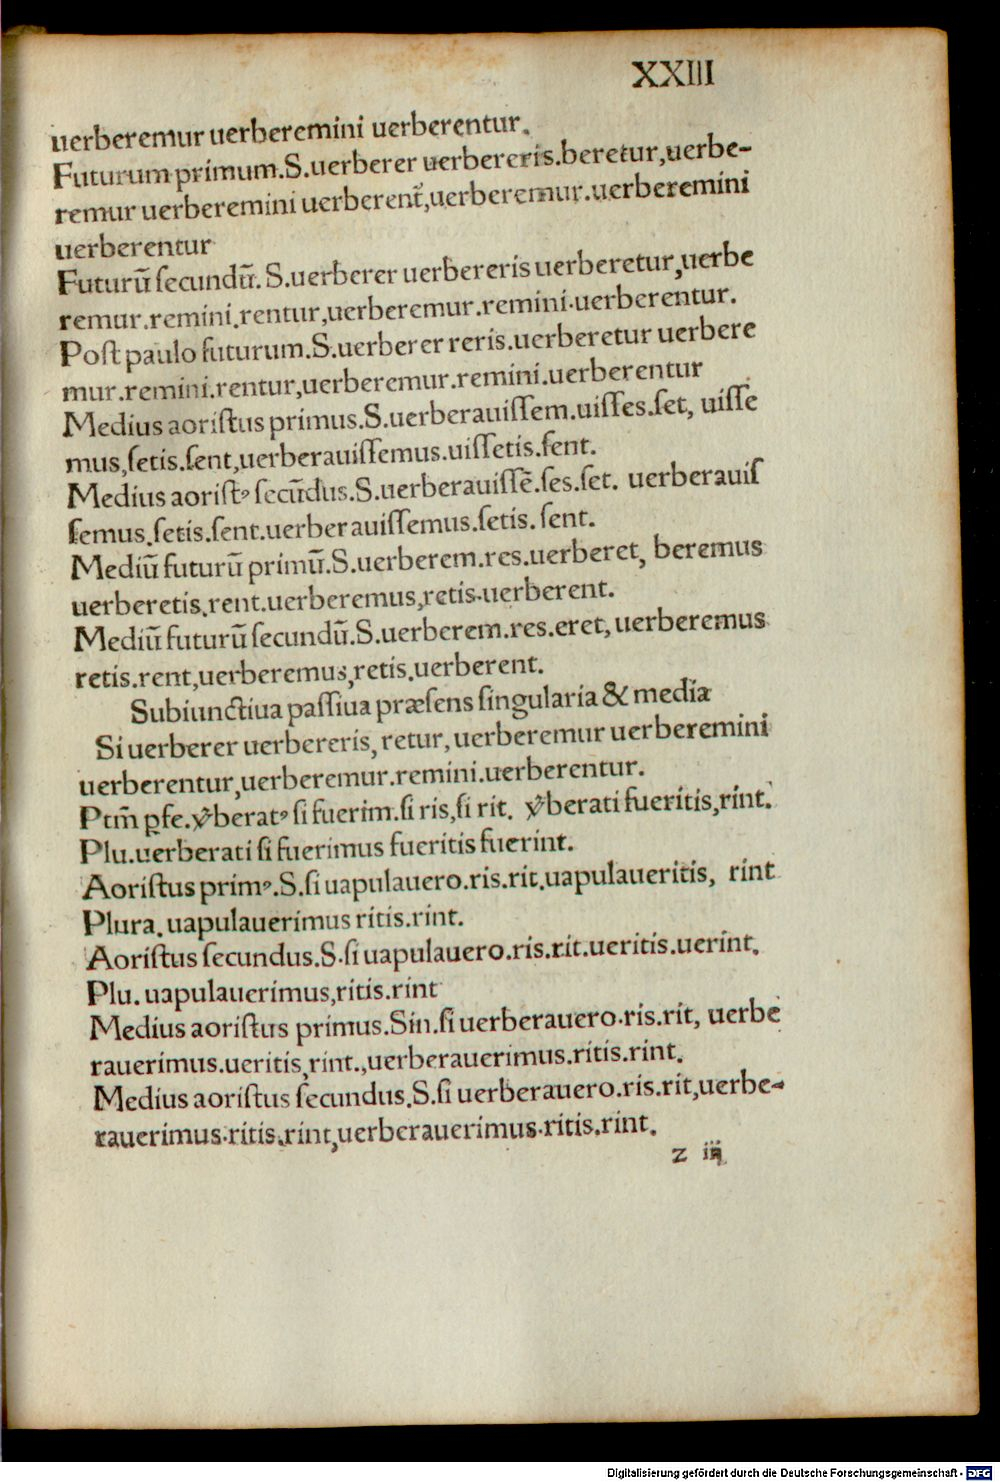 XXIII
uerberemur uerberemini uerberentur.
Futurum primum.S.uerberer uerbereris.beretur,uerbe-
remur uerberemini uerberent᷑,uerberemur.uerberemini
uerberentur
Futurũ ſecundũ. S.uerberer uerbereris uerberetur,uerbe
remur.remini.rentur,uerberemur.remini.uerberentur.
Poſt paulo futurum.S.uerberer reris.uerberetur uerbere
mur.remini.rentur,uerberemur.remini.uerberentur
Medius aoriſtus primus.S.uerberauiſſem.uiſſes.ſet, uiſſe
mus,ſetis.ſent,uerberauiſſemus.uiſſetis.ſent.
Medius aoriſtꝰ ſecũdus.S.uerberauiſſẽ.ſes.ſet. uerberauiſ
ſemus.ſetis.ſent.uerberauiſſemus.ſetis. ſent.
Mediũ futurũ primũ.S.uerberem.res.uerberet, beremus
uerberetis.rent.uerberemus,retis.uerberent.
Mediũ futurũ ſecundũ.S.uerberem.res.eret, uerberemus
retis.rent,uerberemus,retis.uerberent.
Subiunctiua paſſiua præſens ſingularia & media
Si uerberer uerbereris, retur, uerberemur uerberemini
uerberentur,uerberemur.remini.uerberentur.
Ptm̃ ꝑfe.v̉beratꝰ ſi fuerim.ſi ris,ſi rit. v̉berati fueritis,rint.
Plu.uerberati ſi fuerimus fueritis fuerint.
Aoriſtus primꝰ.S.ſi uapulauero.ris.rit.uapulaueritis, rint
Plura. uapulauerimus ritis.rint.
Aoriſtus ſecundus.S.ſi uapulauero.ris.rit.ueritis.uerint.
Plu. uapulauerimus,ritis.rint
Medius aoriſtus primus.Sin.ſi uerberauero.ris.rit, uerbe
rauerimus.ueritis,rint.,uerberauerimus.ritis.rint.
Medius aoriſtus ſecundus.S.ſi uerberauero.ris.rit,uerbe-
rauerimus.ritis.rint,uerberauerimus.ritis.rint.
z iii
Digitalisierung gefördert durch die Deutsche Forschungsgemeinschaft - DFG